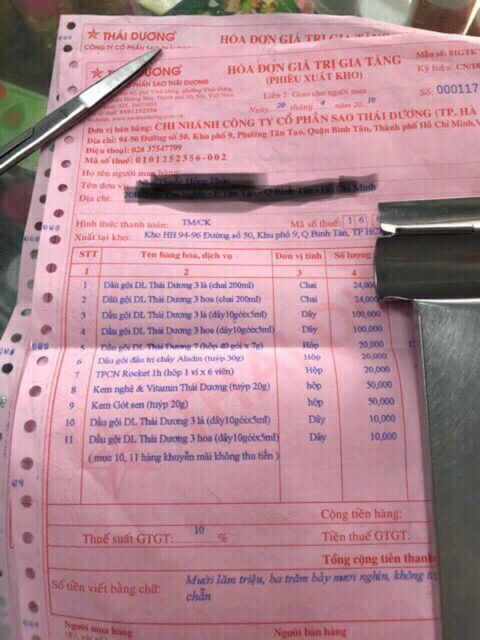 THÁI DƯƠNG
CÔNG TY CỔ PHẦN SAO
HÓA ĐƠN GIÁ TRỊ GIA TĂNG
THÁI DƯƠNG
PHẦN SAO THÁI DƯƠNG
HÓA ĐƠN GIÁ TRỊ GIA TĂNG
(PHIẾU XUẤT KHO)
Mẫu số: 01GTK
Ký hiệu: CN/18
Liên 2: Giao cho người mua
Số: 000117
Ngày 20 tháng 4 năm 2018
Đơn vị bán hàng: CHI NHÁNH CÔNG TY CỔ PHẦN SAO THÁI DƯƠNG (TP. HÀ
Địa chỉ: 94-96 Đường số 50, Khu phố 9, Phường Tân Tạo, Quận Bình Tân, Thành phố Hồ Chí Minh,
Điện thoại: 028 37547799
Mã số thuế: 0101252356-002
Họ tên người mua hàng:
Tên đơn vị
Địa chỉ: Q.Bình Tân - Hồ Chí Minh
Hình thức thanh toán: TM/CK
Mã số thuế: 1 6
Xuất tại kho: Kho HH 94-96 Đường số 50, Khu phố 9, Q.Bình Tân, TP HC
STT Tên hàng hóa, dịch vụ Đơn vị tính Số lượng
1 2 3 4
1 Dầu gội DL Thái Dương 3 lá (chai 200ml) Chai 24,00
2 Dầu gội DL Thái Dương 3 hoa (chai 200ml) Chai 24,000
3 Dầu gội DL Thái Dương 3 lá (dây10góix5ml) Dây 100,000
4 Dầu gội DL Thái Dương 3 hoa (dây10góix5ml) Dây 100,000
5 Dầu gội DL Thái Dương 7 (hộp 40 gói x 7g) Hộp 20,000
6 Dầu gội đầu trị chấy Aladin (tuýp 30g) Hộp 20,000
7 TPCN Rocket 1h (hộp 1 vỉ x 6 viên) Hộp 20,000
8 Kem nghệ & Vitamin Thái Dương (tuýp 20g) hộp 50,000
9 Kem Gót sen (tuýp 20g) hộp 50,000
10 Dầu gội DL Thái Dương 3 lá (dây10góix5ml) Dây 10,000
11 Dầu gội DL Thái Dương 3 hoa (dây10góix5ml) Dây 10,000
( mục 10, 11 hàng khuyến mãi không thu tiền )
Cộng tiền hàng:
Thuế suất GTGT: 10 %
Tiền thuế GTGT:
Tổng cộng tiền thanh
Số tiền viết bằng chữ: Mười lăm triệu, ba trăm bảy mươi nghìn, không
chẵn
Người mua hàng
Người bán hàng